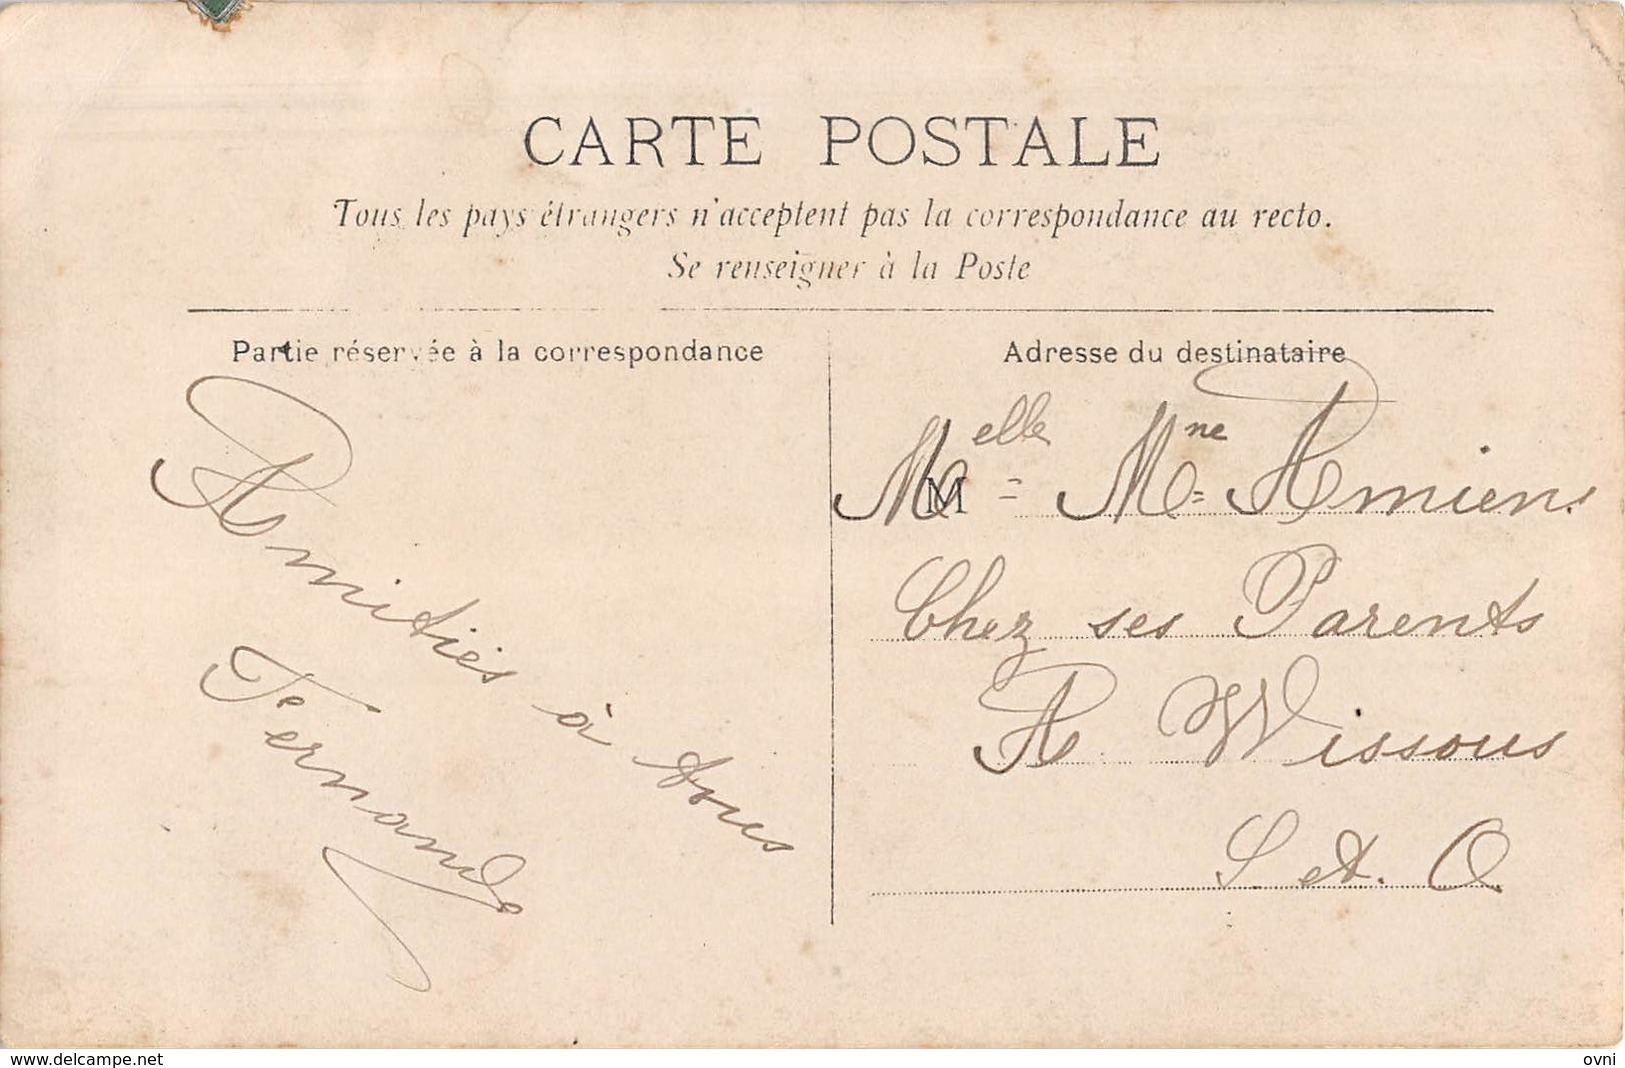 CARTE POSTALE
Tous les pays étrangers n'acceptent pas la correspondance au recto.
Se renseigner à la Poste
Partie réservée à la correspondance
Amitiés à tous
Fernande
Adresse du destinataire
M
Melle Mne Amiens
Chez ses Parents
A Wissous
S et. O.
www.delcampe.net
ovni